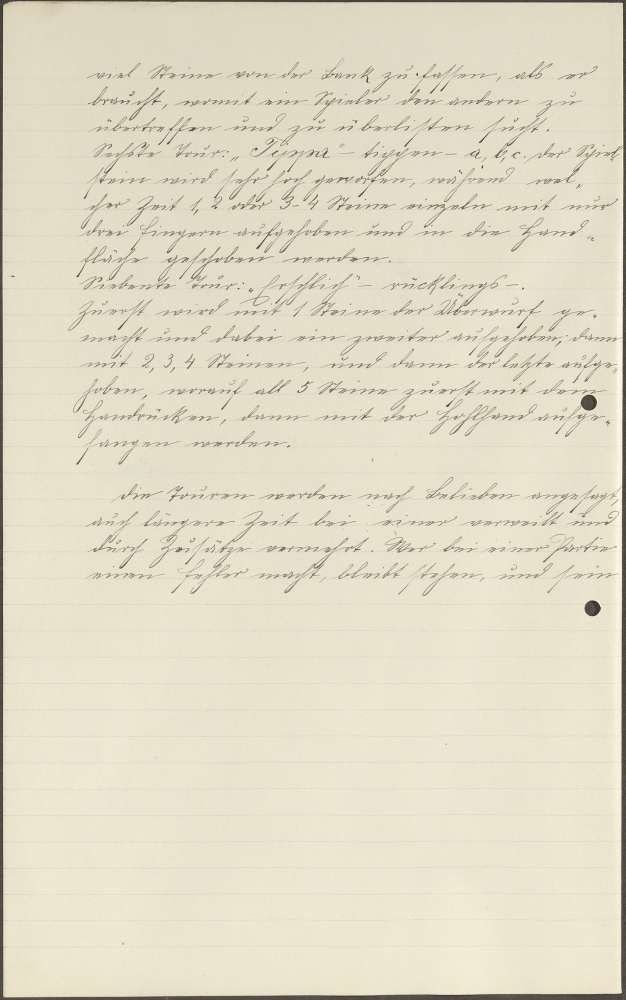 viel Steine von der Bank zu fassen, als er
braucht, womit ein Spieler den andern zu
übertreffen und zu überlisten sucht.
Sechste Tour: „Tippa“ – tippen – a, b, c. Der Spiel-
stein wird sehr hoch geworfen, während wel-
cher Zeit 1, 2 oder 3-4 Steine einzeln mit nur
drei Fingern aufgehoben und in die Hand-
fläche geschoben werden.
Siebente Tour: „ – rücklings –.
Zuerst wird mit 1 Steine der Überwurf ge-
macht und dabei ein zweiter aufgehoben; dann
mit 2, 3, 4 Steinen, und dann der letzte aufge-
hoben, worauf all 5 Steine zuerst mit dem
Handrücken, dann mit der Hohlhand aufge-
fangen werden.
Die Touren werden nach Belieben angesagt,
auch längere Zeit bei einer verweilt und
durch Zusätze vermehrt. Wer bei einer Partie
einen Fehler macht, bleibt stehen, und sein